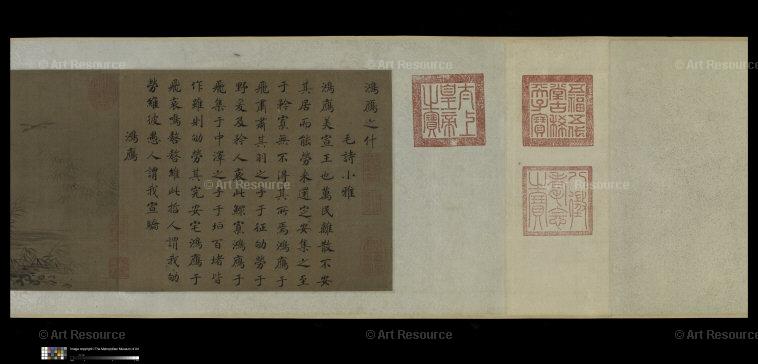 © Art Resource
© Art Resource
© Art Resource
五福五代
堂古稀天
子寶
八徵
耄念
之寶
太上
皇帝
之寶
鴻鴈之什
毛詩小雅
鴻鴈美宣王也萬民離散不安
其居而能勞來還定安集之至
于矜寡無不得其所焉鴻鴈于
飛肅肅其羽之子于征劬勞于
野爰及矜人哀此鰥寡鴻鴈于
飛集于中澤之子于垣百堵皆
作雖則劬勞其究安宅鴻鴈于
飛哀鳴嗸嗸維此哲人謂我劬
勞維彼愚人謂我宣驕
鴻鴈
© Art Resource
© Art Resource
© Art Resource
© Art Resource
© Art Resource
Image copyright ©The Metropolitan Museum of Art